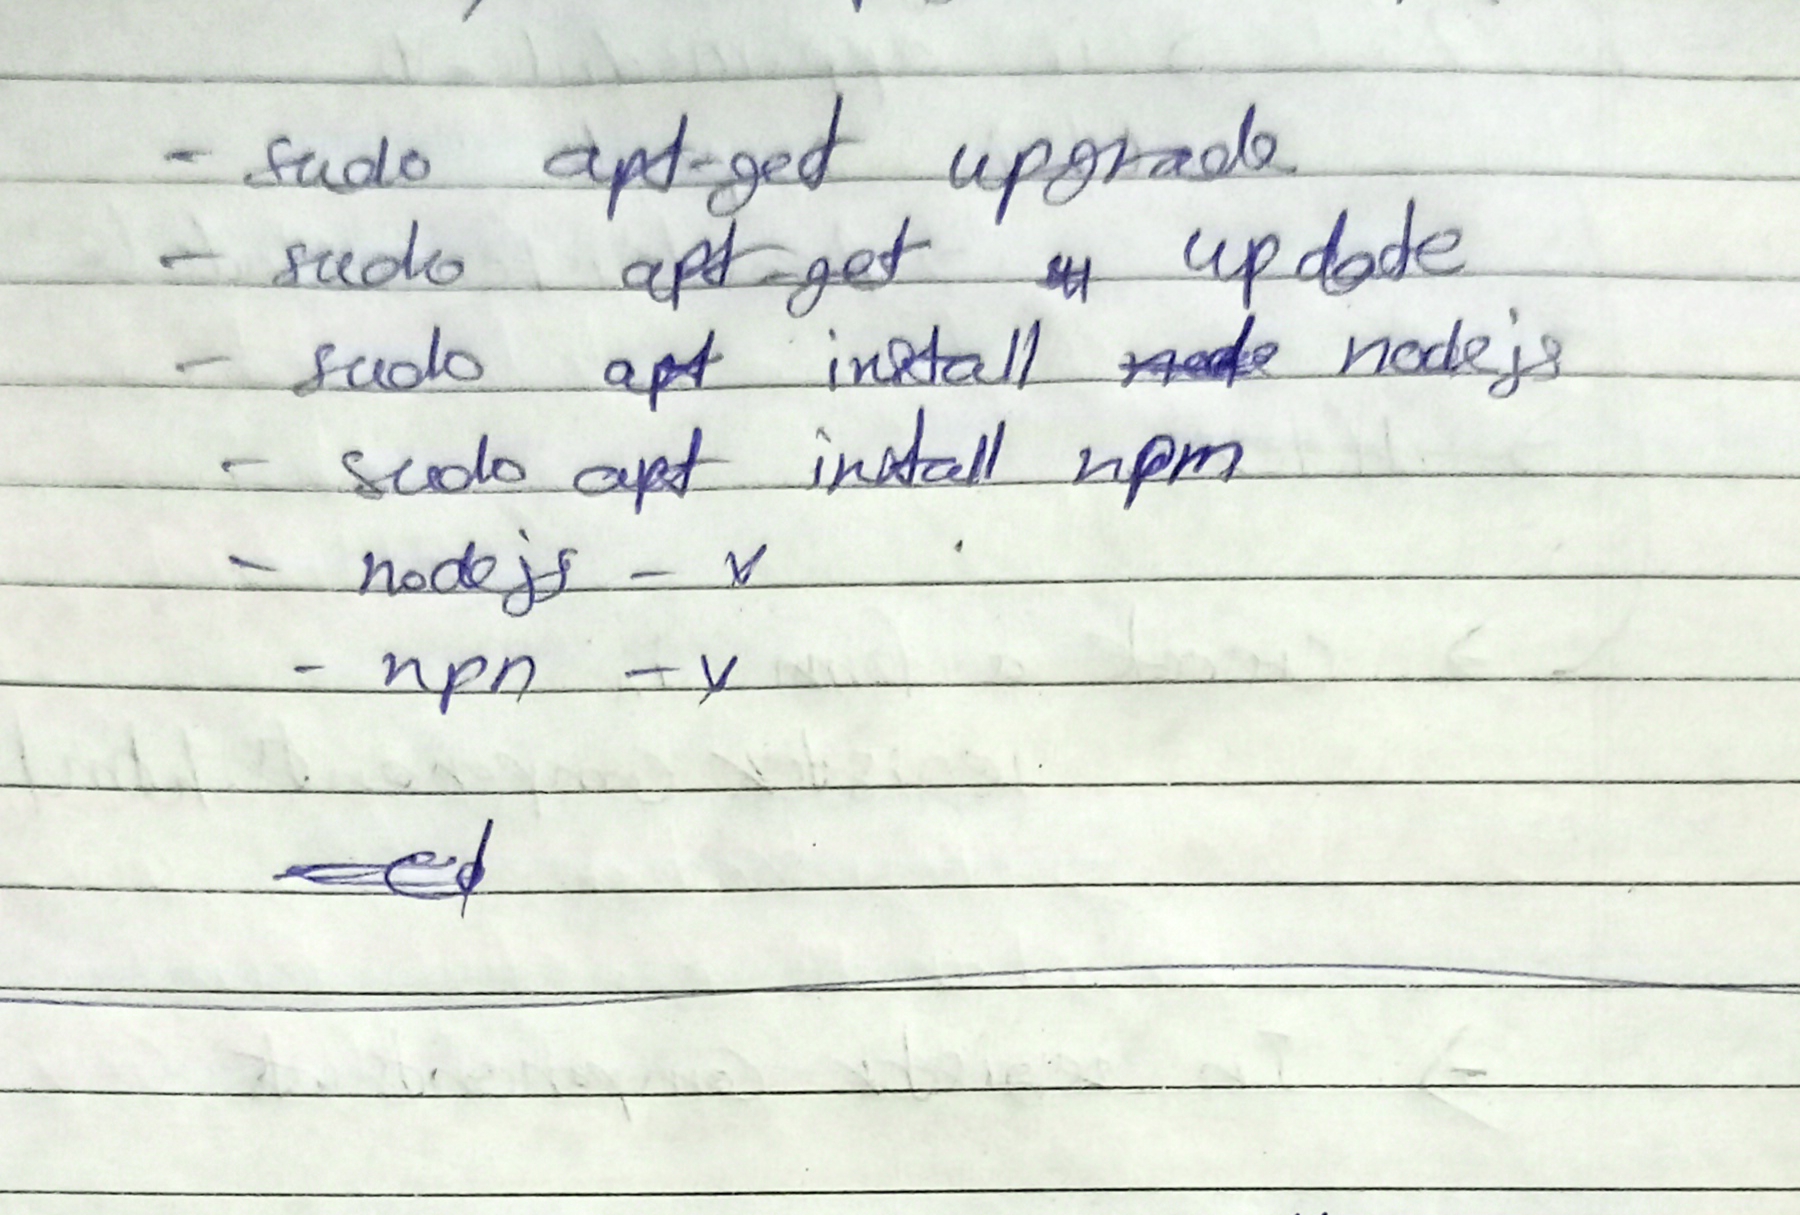 - sudo apt-get upgrade
- sudo apt-get update
- sudo apt install node nodejs
- sudo apt install npm
- nodejs - v
- npn - v